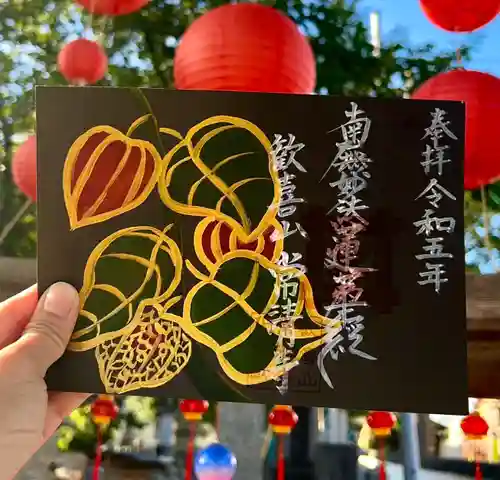 奉拝 令和五年
南無妙法蓮華経
歓喜山 常清寺